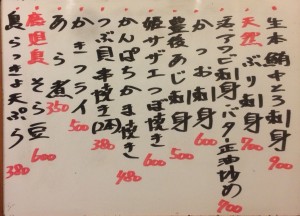 生本鮪中とろ刺身 900
天然ぶり刺身 700
活アワビ刺身バター正油炒め 900
かつお刺身 600
豊後あじ刺身 600
姫サザエつぼ焼き 500
かんぱちかま焼き 480
つぶ貝串焼き(2本) 380
かきフライ 500
あら煮 350
鹿児島そら豆 600
島らっきょ天ぷら 380